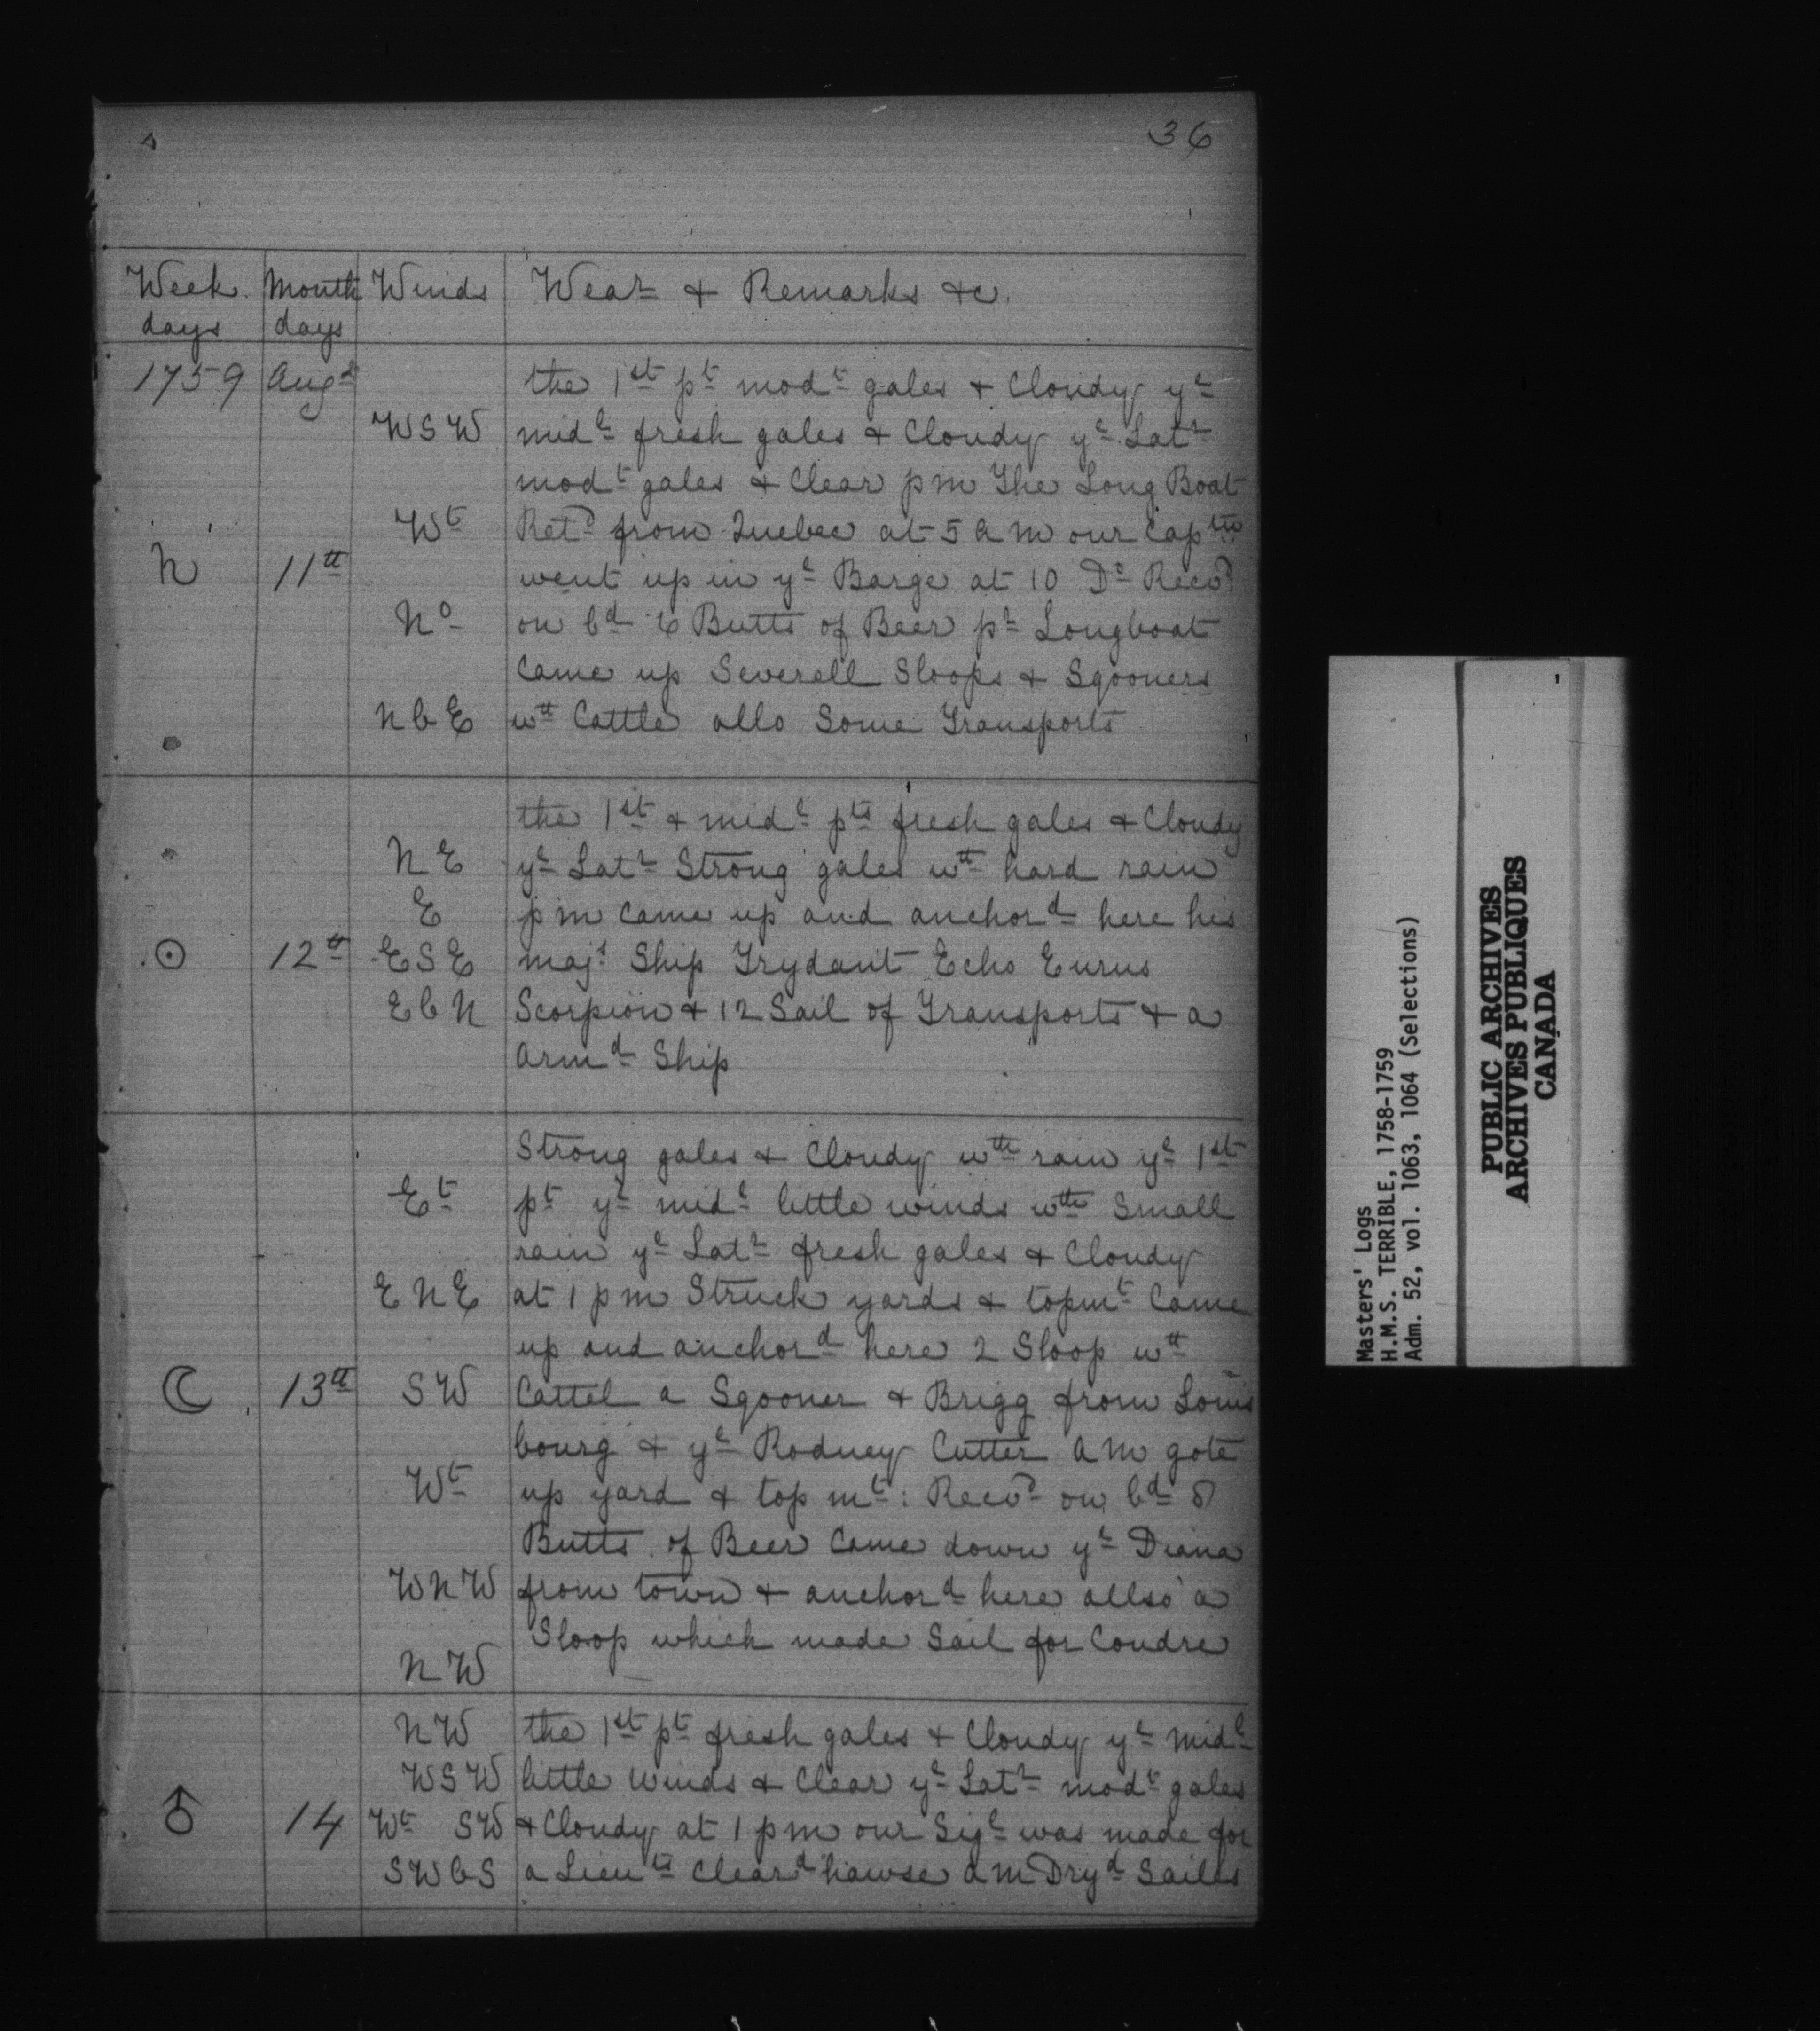 36
Week days Month days Winds Wear & Remarks &c.
1759 Augt
the 1st pt modt gales & Cloudy ye
WSW midl fresh gales & Cloudy ye Latr
modt gales & Clear pm The Long Boat
Wt Retd from Quebec at 5 am our Captn
♄ 11th went up in ye Barge at 10 Do Recvd
No on bd 6 Butts of Beer pr Longboat
Came up Severell Sloops & Sgooners
NbE wth Cattle allo Some Transports
the 1st & midl pts fresh gales & Cloudy
NE ye Latr Strong gales wth hard rain
E pm came up and anchord here his
☉ 12th ESE majs Ship Trydant Echo Eurus
EbN Scorpion & 12 Sail of Transports & a
Armd Ship
Strong gales & Cloudy wth rain ye 1st
Et pt ye midl little winds wth Small
rain ye Latr fresh gales & Cloudy
ENE at 1 pm Struck yards & topmt Came
up and anchord here 2 Sloop wth
☾ 13th SW Cattel a Sgooner & Brigg from Louis
bourg & ye Rodney Cutter am gote
Wt up yard & top mt: Recvd on bd 8
Butts of Beer Came down ye Diana
WNW from town & anchord here allso a
Sloop which made Sail for Coudre
NW
NW the 1st pt fresh gales & Cloudy ye midl
WSW little winds & Clear ye Latr modt gales
♂ 14 Wt SW & Cloudy at 1 pm our Sigl was made for
SWbS a Lieuts Cleard hawse am Dryd Sailes
Masters' Logs
H.M.S. TERRIBLE, 1758-1759
Adm. 52, vol. 1063, 1064 (Selections)
PUBLIC ARCHIVES
ARCHIVES PUBLIQUES
CANADA